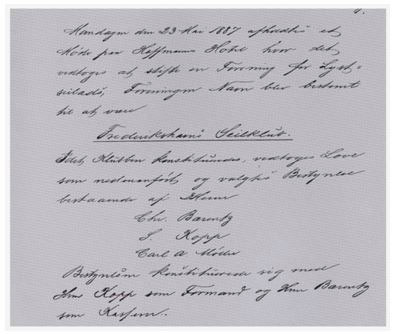 Mandagen den 23 Mai 1887 afholdtes et
Møde paa Hoffmanns Hotel hvor det
vedtoges at stifte en Forening for Lyst-
seilads, Foreningens Navn blev bestemt
til at være
Frederikshavns Seilklub.
Klubben konstitueredes, vedtoges Love
som nedenanført og valgtes Bestyrelse
bestaaende af Herrer
Chr. Barentz
S. Kopp
Carl A Møller
Bestyrelsen konstituerede sig med
Herr Kopp som Formand og Herr Barentz
som Kasserer.